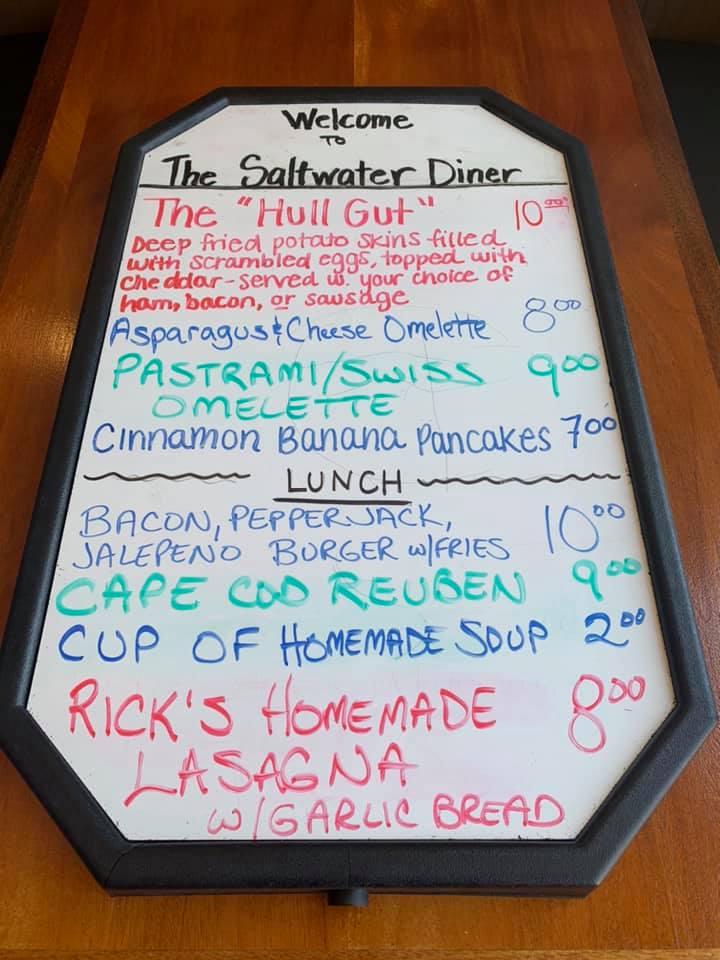 Welcome
TO
The Saltwater Diner
The "Hull Gut" 10.00
Deep fried potato skins filled
with scrambled eggs, topped with
cheddar - served w. your choice of
ham, bacon, or sausage
Asparagus & Cheese Omelette 8.00
PASTRAMI/SWISS 9.00
OMELETTE
Cinnamon Banana Pancakes 7.00
LUNCH
BACON, PEPPERJACK, 10.00
JALEPENO BURGER W/FRIES
CAPE COD REUBEN 9.00
CUP OF HOMEMADE SOUP 2.00
RICK'S HOMEMADE 8.00
LASAGNA
W/GARLIC BREAD